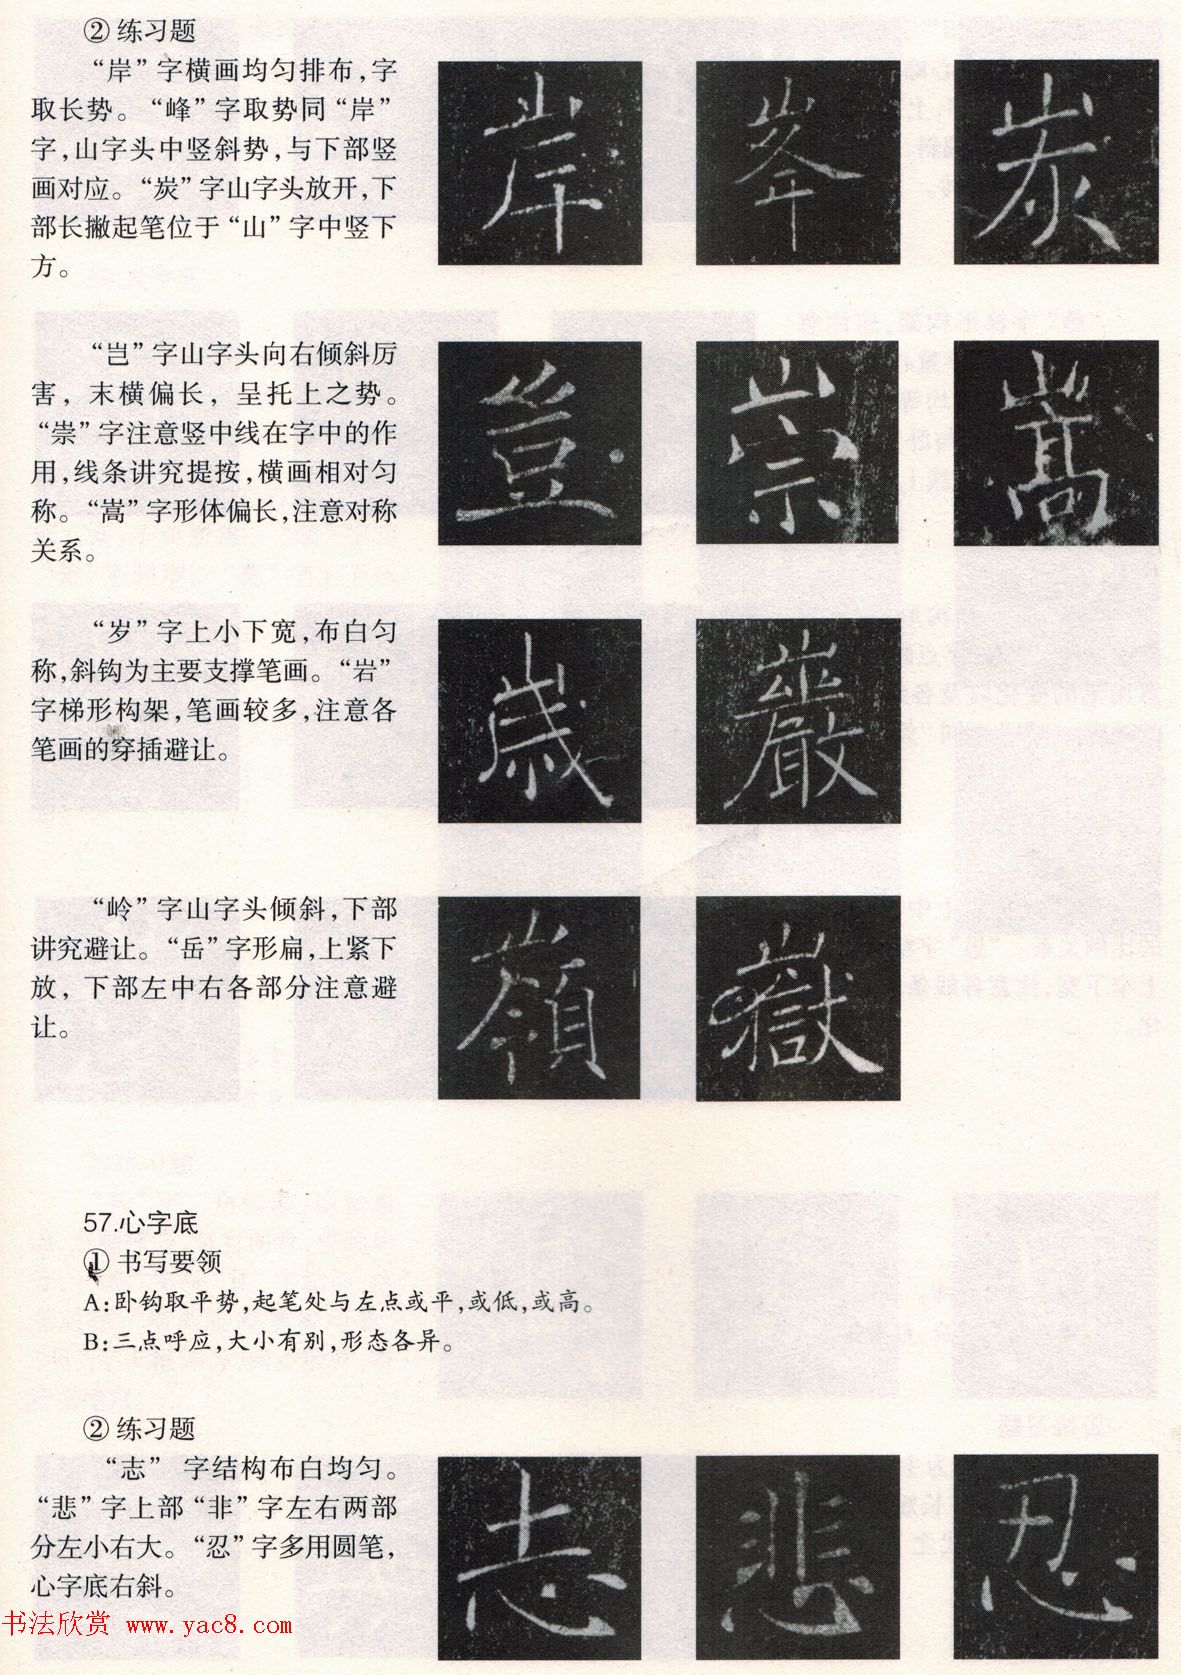 ② 练习题
“岸”字横画均匀排布,字
取长势。“峰”字取势同“岸”
字,山字头中竖斜势,与下部竖
画对应。“炭”字山字头放开,下
部长撇起笔位于“山”字中竖下
方。
岸 峯 炭
“岂”字山字头向右倾斜厉
害，末横偏长，呈托上之势。
“崇”字注意竖中线在字中的作
用,线条讲究提按,横画相对匀
称。“嵩”字形体偏长,注意对称
关系。
豈 崇 嵩
“岁”字上小下宽,布白匀
称,斜钩为主要支撑笔画。“岩”
字梯形构架,笔画较多,注意各
笔画的穿插避让。
歲 巖
“岭”字山字头倾斜,下部
讲究避让。“岳”字形扁,上紧下
放，下部左中右各部分注意避
让。
嶺 嶽
57.心字底
① 书写要领
A:卧钩取平势,起笔处与左点或平,或低,或高。
B:三点呼应,大小有别,形态各异。
② 练习题
“志” 字结构布白均匀。
“悲”字上部“非”字左右两部
分左小右大。“忍”字多用圆笔,
心字底右斜。
志 悲 忍
书法欣赏 www.yac8.com